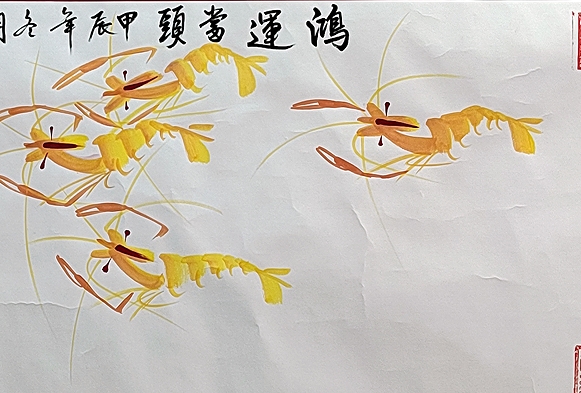 鴻運當頭 甲辰年冬月